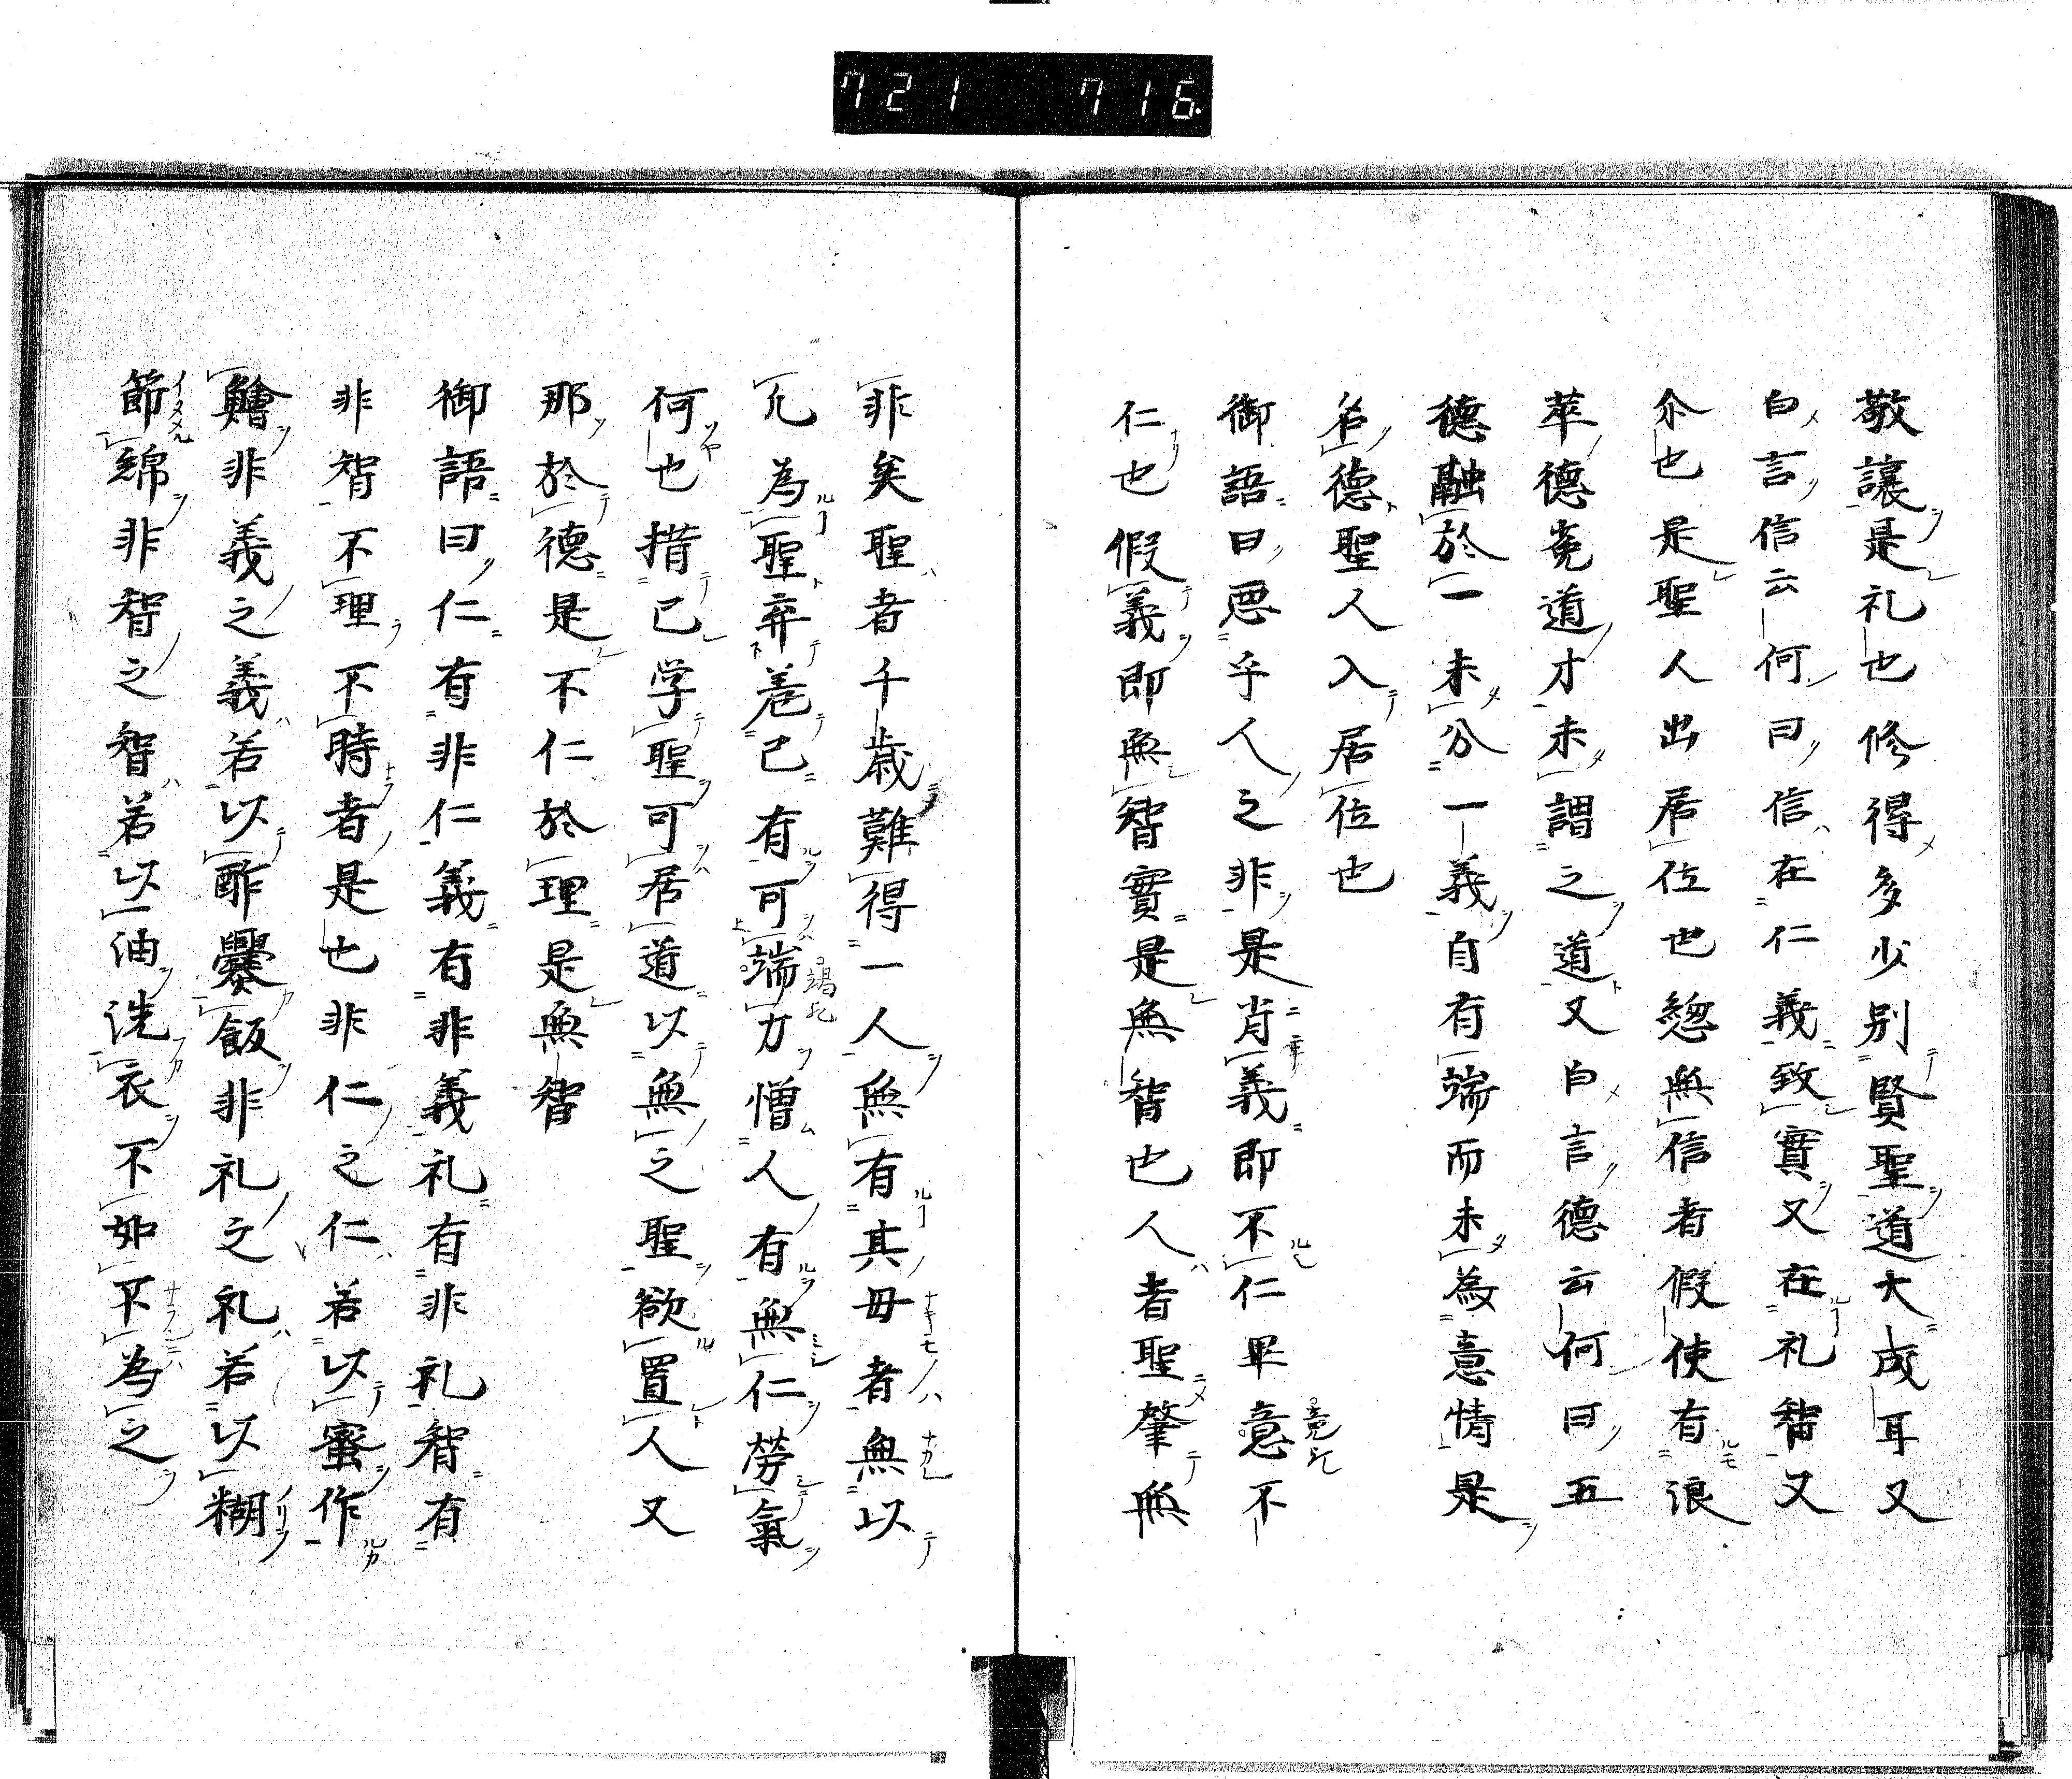 721 716
敬讓是礼也修得多少別賢聖道大成耳又
白言信云何曰信在仁義致實又在礼智又
尒也是聖人出居位也㥟無信者假使有浪
萃德覓道才未謂之道又白言德云何曰五
德融於一未分一義自有端而未為意情是
名德聖人入居位也
御語曰悪乎人之非是肖義即不仁畢意不
仁也假義即無智實是無智也人者聖肇無
非矣聖者千歳難得一人無有其毋者無以
凢為聖弃差己有可端力憎人有無仁勞氣
何也措已学聖可居道以無之聖欲置人又
那於德是不仁於理是無智
御語曰仁有非仁義有非義礼有非礼智有
非智不理不時者是也非仁之仁若以蜜作
鱠非義之義若以酢爨飯非礼之礼若以糊
節綿非智之智若以油洗衣不如不為之